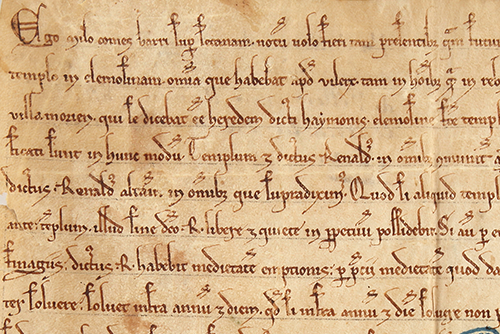 Ego Milo comes barri sup secanam. notu uolo fieri tam presentibz qm futur
templo in elemosinam. omia que habebat apd uilers. tam in hoibz qa in red
uilla morien. qui se dicebat ee heredem dicti haymonis. elemosine fre templ
ficati sunt in hunc modu. Templum ⁊ dictus Renald. in omibz
dictus Renald in omibz que supradixim. Quod si aliquid templ
ante. templum. illud sine deo. R. libere ⁊ quiete in ppetuu possidebit. Si au p e
dictus R. habebit medietate emptionis. p pcii medietate quod da
ter soluere. soluet infra annu ⁊ diem. qd si infra annu ⁊ die soluere non